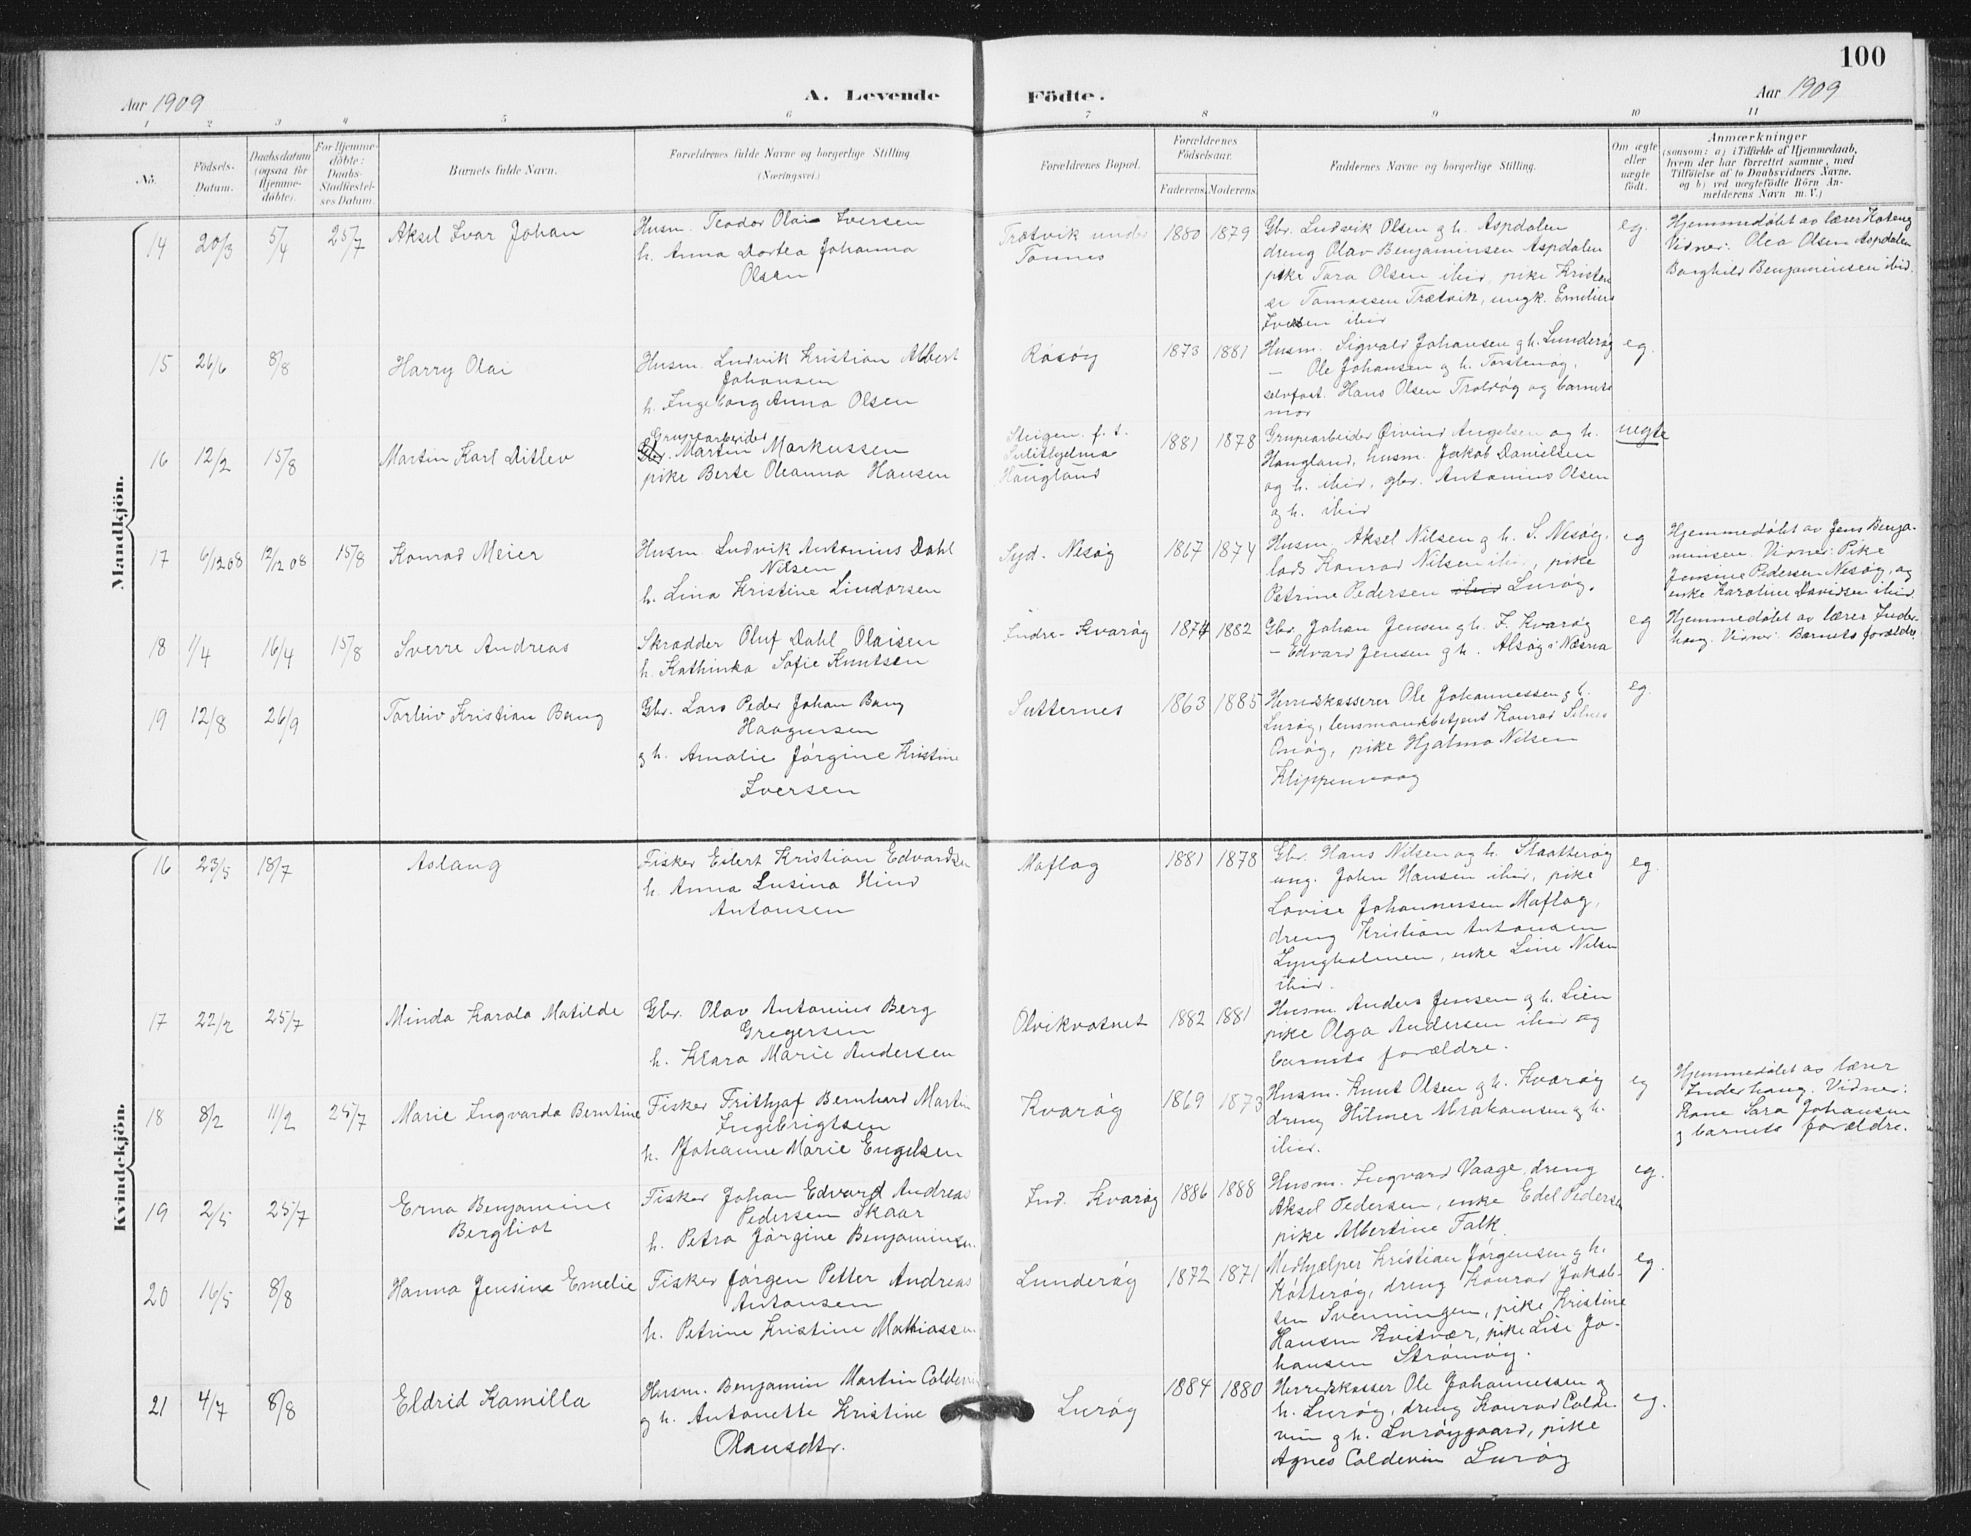 100
Aar 1909
A. Levende Födte.
Aar 1909
1 2 3 4 5 6 7 8 9 10 11
No.
Födsels-Datum.
Daabsdatum (ogsaa for Hjemme-döbte).
For Hjemme-döbte: Daabs-Stadfæstel-ses Datum.
Barnets fulde Navn.
Forældrenes fulde Navne og borgerlige Stilling (Næringsvei.)
Forældrenes Bopæl.
Forældrenes Fødselsaar.
Faderens. Moderens.
Faddernes Navne og borgerlige Stilling.
Om ægte eller uægte født.
Anmærkninger
(saasom: a) i Tilfælde af Hjemmedaab,
hvem der har forrettet samme, med
Tilføielse af to Daabsvidners Navne,
og b) ved uægtefödte Börn An-
melderens Navn m. V.)
Mandkjön.
14 20/3 5/4 25/7 Aksel Ivar Johan
Husm. Teodor Olai Iversen
h. Anna Dortea Johanna
Olsen
Trætvik under
Tonnes
1880 1879
Gbr. Ludvik Olsen g h. Aspdalen
dreng Olav Benjaminsen Aspdalen
pike Tara Olsen ibid, pike Kristen
se Tomassen Trætvik, ungk. Emilius
Iversen ibid
eg.
Hjemmedøbt av lærer Hoteng
Vidner: Olea Olsen Aspdalen
Borghild Benjaminsen ibid.
15 26/6 8/8 Harry Olai
Husm. Ludvik Kristian Albert
Johansen
h. Ingeborg Anna Olsen
Råsøy
1873 1881
Husm. Sigvald Johansen g h. Lunderøy
— Ole Johansen g h. Torstenøy,
selvfost. Hans Olsen Troldøy og barnets
mor
eg.
16 12/2 15/8 Martin Karl Ditlev
Grupearbeider
Gbr. Martin Markussen
pike Berte Oleanna Hansen
Steigen f. t.
Sulithjelma
Haugland
1881 1878
Grupearbeider Øivind Angelsen og h.
Haugland, husm. Jakob Danielsen
og h. ibid, gbr. Antonius Olsen
og h. ibid
uegte
17 6/12 08 12/12 08 15/8 Konrad Meier
Husm. Ludvik Antonius Dahl
Nilsen
h. Lina Kristine Lindorsen
Syd. Nesøy
1867 1874
Husm. Aksel Nilsen g h. S. Nesøy,
lods Konrad Nilsen ibid, pike
Petrine Pedersen ibid Lurøy.
eg
Hjemmedøbt av Jens Benja-
minsen. Vidner: Pike
Jensine Pedersen Nesøy, og
enke Karoline Davidsen ibid.
18 1/4 16/4 15/8 Sverre Andreas
Skrædder Oluf Dahl Olaisen
h. Kathinka Sofie Knutsen
Indre-Kvarøy
1874 1882
Gbr. Johan Jensen g h. I. Kvarøy
— Edvard Jensen g h. Alsøy i Næsna
eg
Hjemmedøbt av lærer Inder-
haug. Vidner: Barnets forældre
19 12/8 26/9 Torleiv Kristian Bang
Gbr. Lars Peder Johan Bang
Haagensen
g h. Amalie Jørgine Kristine
Iversen
Sutternes
1863 1885
Herredskasserer Ole Johannessen g h.
Lurøy, lensmandsbetjent Konrad Selnes
Onøy, pike Hjalma Nilsen
Klippenvaag
eg.
Kvindekjön.
16 23/5 18/7 Aslaug
Fisker Eilert Kristian Edvardsen
h. Anna Lusina Hind
Antonsen
Moflag
1881 1878
Gbr. Hans Nilsen og h. Slaatterøy
ung. John Hansen ibid, pike
Lovise Johannessen Moflag,
dreng Kristian Antonsen
Lyngholmen, enke Line Nilsen
ibid.
eg.
17 22/2 25/7 Minda Karola Matilde
Gbr. Olav Antonius Berg
Gregersen
h. Klara Marie Andersen
Olvikvatnet
1882 1881
Husm. Anders Jensen g h. Lien
pike Olga Andersen ibid og
barnets forældre.
18 8/2 11/2 25/7 Marie Ingvarda Berntine
Fisker Frithjof Bernhard Martin
Ingebrigtsen
h. Johanne Marie Engelsen
Kvarøy
1869 1873
Husm. Knut Olsen g h. Kvarøy
dreng Hilmer Abrahamsen g h.
ibid.
eg
Hjemmedøbt av lærer
Inderhaug. Vidner:
Kone Sara Johansen
g barnets forældre.
19 2/5 25/7 Erna Benjamine
Bergliot
Fisker Johan Edvard Andreas
Pedersen Skaar
h. Petra Jørgine Benjaminsen.
Ind. Kvarøy
1886 1888
Husm. Ingvard Vaage, dreng
Aksel Pedersen, enke Edel Pedersen
pike Albertine Falk.
eg.
20 16/5 8/8 Hanna Jensine Emelie
Fisker Jørgen Petter Andreas
Antonsen
h. Petrine Kristine Mathiassen.
Lunderøy
1872 1871
Medhjælper Kristian Jørgensen g h.
Køtterøy, dreng Konrad Jakob-
sen Svenningen, pike Kristine
Hansen Kvitvær, pike Lise Jo-
hansen Strømøy.
eg.
21 4/7 8/8 Eldrid Kamilla
Husm. Benjamin Martin Coldevin
g h. Antonette Kristine
Olausdtr.
Lurøy
1884 1880
Herredskasser Ole Johannessen g
h. Lurøy, dreng Konrad Colde-
vin g h. Lurøygaard, pike
Agnes Coldevin Lurøy
eg.